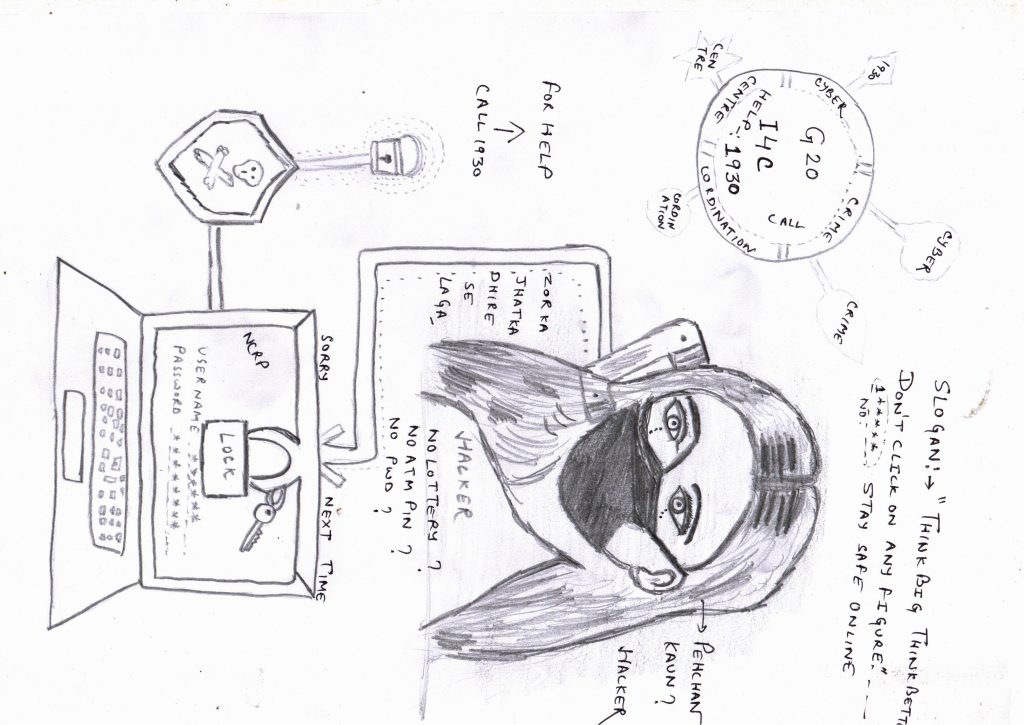 SLOGAN:→ "THINK BIG THINK BETT
DON'T CLICK ON ANY FIGURE."
1*****
NO: STAY SAFE ONLINE
1930
CYBER
CRIME
CEN
TRE
CORDIN
ATION
CYBER
CRIME
CORDINATION
CENTRE
G20
I4C
HELP-:1930
CALL
PEHCHAN
KAUN?
HACKER
FOR HELP
↑
CALL 1930
ZORKA
JHATKA
DHIRE
SE
LAGA
HACKER
NO LOTTERY?
NO ATM PIN?
NO PWD?
SORRY NEXT TIME
NCRP
LOCK
USERNAME *****
PASSWORD *******